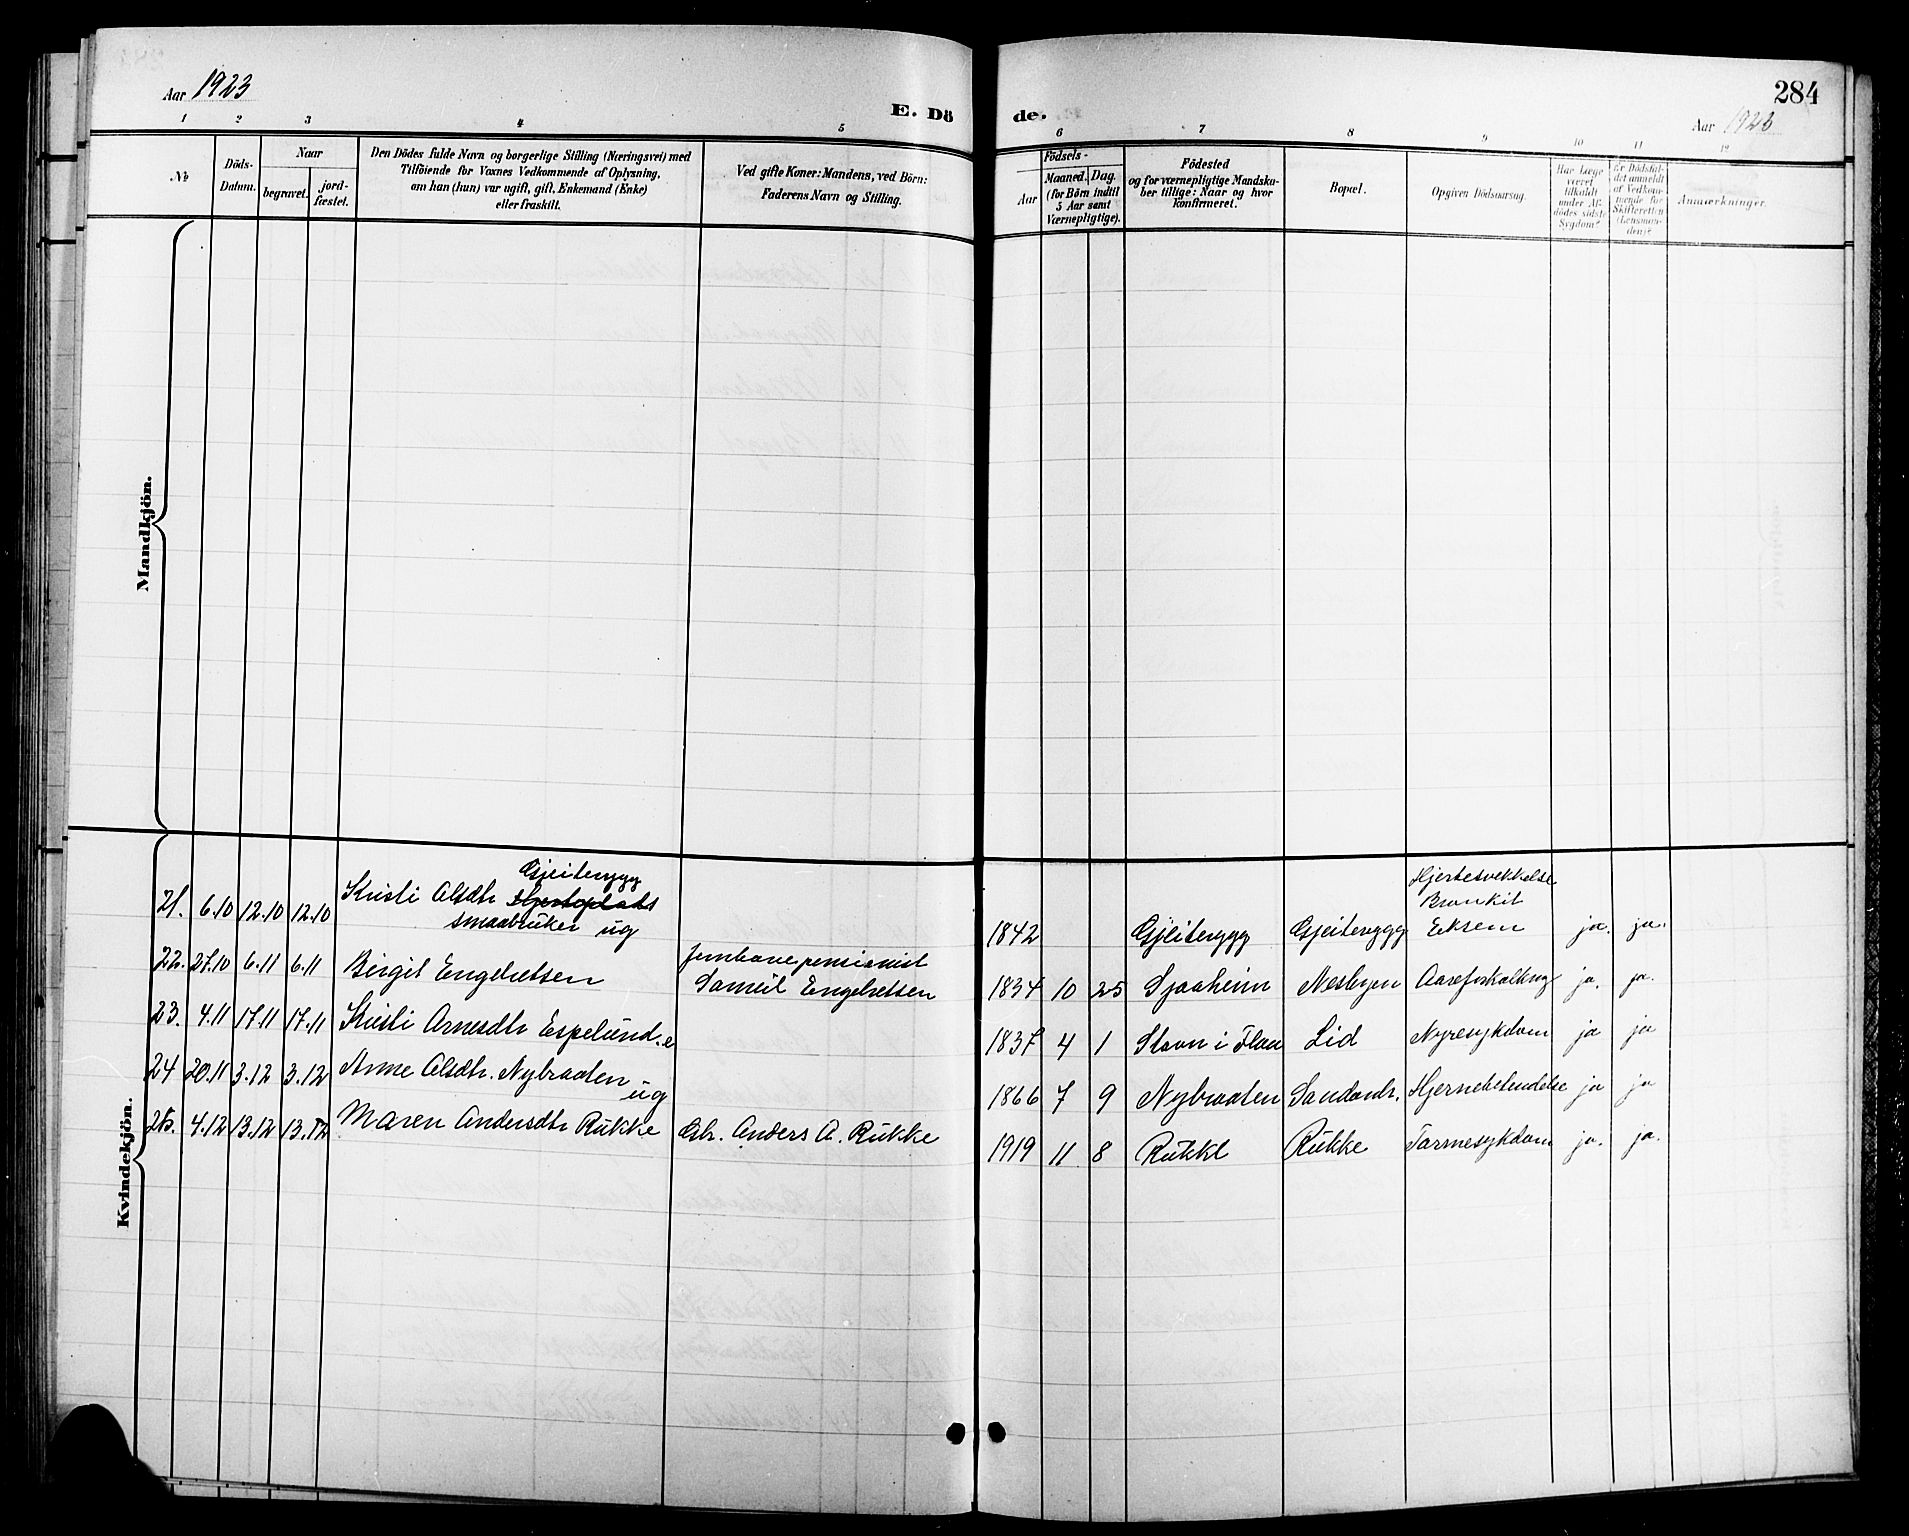 Aar 1923
E. Dö de.
284
Aar 1923
1 2 3 4 5 6 7 8 9 10 11 12
No
Döds-Datum.
Naar
begravet.
jord-fæstet.
Den Dödes fulde Navn og borgerlige Stilling (Næringsvei) med
Tilföiende for Voxnes Vedkommende af Oplysning,
om han (hun) var ugift, gift, Enkemand (Enke)
eller fraskilt.
Ved gifte Koner: Mandens, ved Börn:
Faderens Navn og Stilling.
Födsels-
Aar
Maaned. Dag.
(for Börn indtil
5 Aar samt
Værnepligtige).
Födested
og for værnepligtige Mandska-
ber tillige: Naar og hvor
konfirmeret.
Bopæl.
Opgiven Dödsaarsag.
Har Læge
været
tilkaldt
under Af-
dödes sidste
Sygdom?
Er Dödsfal-
det anmeldt
af Vedkom-
mende for
Skifteretten
(Lensman-
den)?
Anmærkninger.
Mandkjön.
Kvindekjön.
21. 6.10 12.10 12.10 Kristi Olsdtr Gjeiterygg
smaabruker ug
1842 Gjeiterygg Gjeiterygg Hjertesvekkelse
Bronkit
Eksem ja. ja.
22. 27.10 6.11 6.11 Birgit Engebretsen Jernbanepensionist
Sameil Engebretsen 1834 10 25 Sjaaheim Nesbyen Aareforkalkng ja. ja.
23. 4.11 17.11 17.11 Kristi Arnesdtr Espelund. e 1837 4 1 Stavn i Flaa Lid Nyresykdom ja ja
24 20.11 3.12 3.12 Anne Olsdtr. Nybraaten ug 1866 7 9 Nybraaten Sandandr. Hjernebetendelse ja ja
25. 4.12 13.12 13.12 Maren Andersdtr Rukke Gbr. Anders A. Rukke 1919 11 8 Rukke Rukke Tarmesykdom ja. ja.